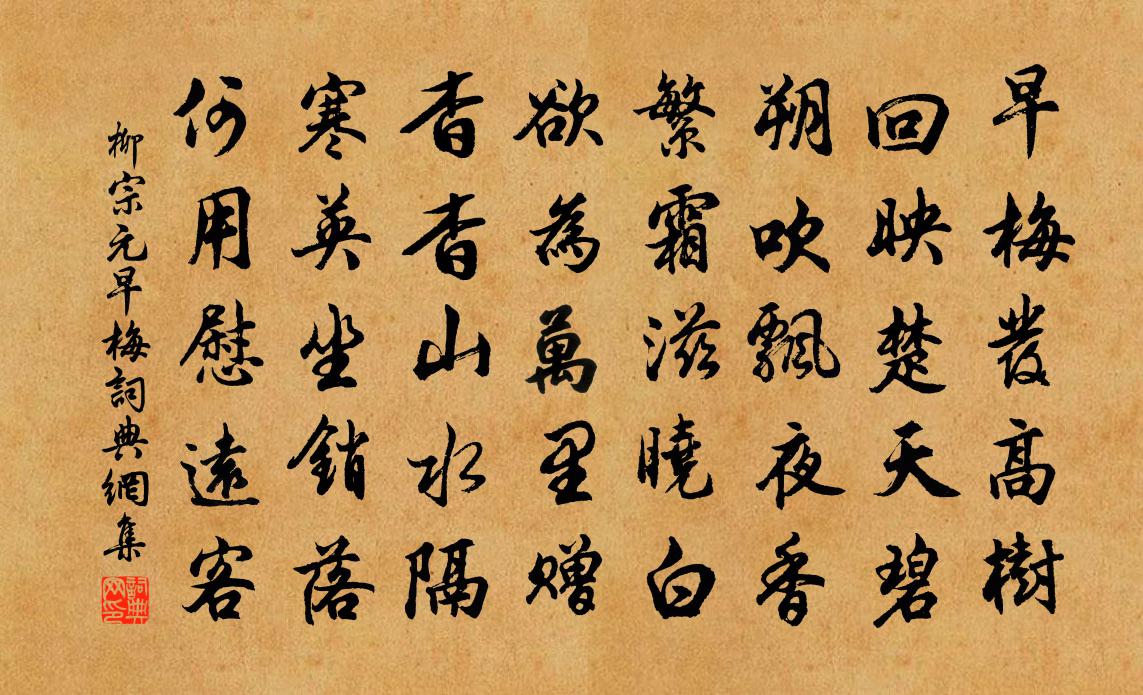 早梅發高樹
回映楚天碧
朔吹飄夜香
繁霜滋曉白
欲為萬里贈
杳杳山水隔
寒英坐銷落
何用慰遠客
柳宗元早梅詞典網集
詞典网印